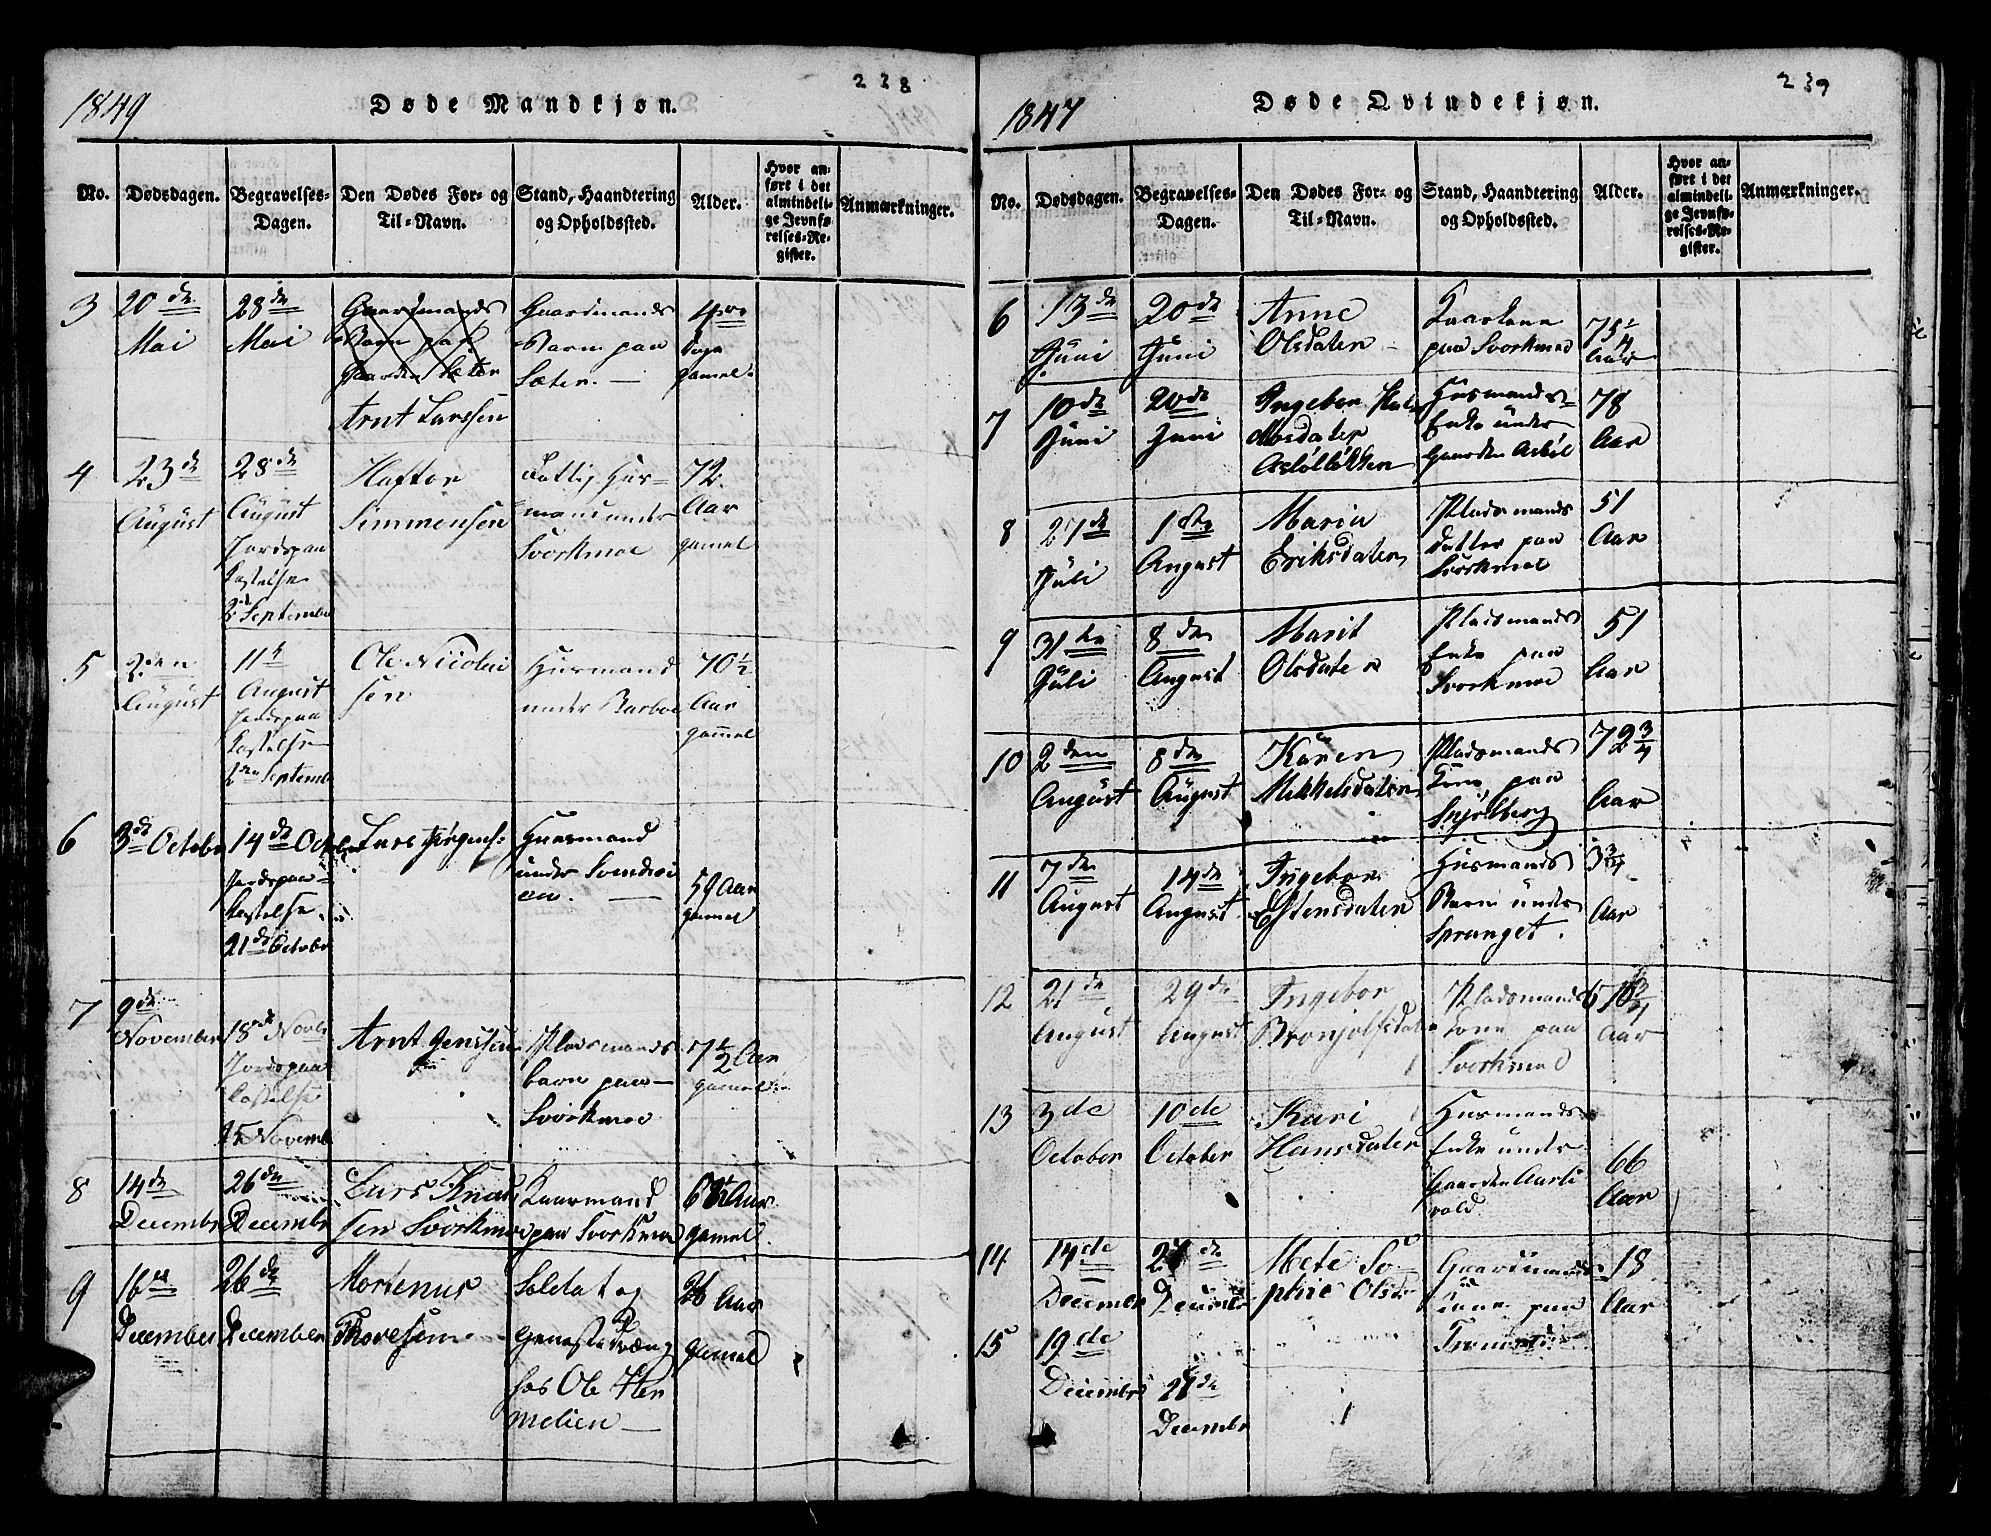 238
1849
Døde Mandkjøn.
No.
Dødsdagen.
Begravelses-
Dagen.
Den Dødes For- og
Til-Navn.
Stand, Haandtering
og Opholdssted.
Alder.
Hvor an-
ført i det
almindeli-
ge Jevnfø-
relses-Re-
gister.
Anmærkninger.
3
20de
Mai
28de
Mai
Gaardmands
Barn paa
Gaarden Sæter
Arnt Larssen
Gaardmands
Barn paa
Sæter. —
Dage
gamel.
4
23de
August
28de
August
Jordspaa
Kastelse
September
Haftor
Simmensen
Fattig Hus-
mand under
Svorkmoe
72
Aar
gamel
5
2den
August
11te
August
Jordspaa
Kastelse
Septemb
Ole Nicolai
sen
Husmand
under Barboe
70 1/2
Aar
gammel
6
3de October
14de Octob
Jordspaa-
Kastelse
21de October
Lars Jørgens:
Huusmand
under
en. —
59 Aar
gamel
7
9de
November
18de Novb
Jordspaa
Kastelse
15 Novemb
Arnt Jenssen
Pladsmands
barn paa
Svorkmoe
7 1/2 Aar
gamel
8
14de
Decembr
26de
Decembr
Lars Knud
sen Svorkmoe
Kaarmand
paa Svorkmoe
Aar
gamel.
9
16de
December
26de
December
Mortenus
Thoresen
Soldat og
hos Ole Her
melien —
26 Aar
gamel
239
1847
Døde Qvindekjøn.
No.
Dødsdagen.
Begravelses-
Dagen.
Den Dødes For- og
Til-Navn.
Stand, Haandtering
og Opholdssted.
Alder.
Hvor an-
ført i det
almindeli-
ge Jevnfø-
relses-Re-
gister.
Anmærkninger.
6
13de
Juni
20de
Juni
Anne
Olsdater
Kaarkone
paa Svorkmoe
75 1/4
Aar
7
10de
Juni
20de
Juni
Ingebor
Husmands-
Enke under
Gaarden
78
Aar
8
27de
Juli
1ste
August
Maria
Eriksdater
Pladsmands
datter paa
Svorkmoe
51
Aar
9
31te
Juli
8de
August
Marit
Olsdater
Pladsmands
Enke paa
Svorkmoe
51
Aar
10
2den
August
8de
August
Karen
Mikkelsdater
Pladsmands
Kone paa
Snjølberg
72 3/4
Aar
11
7de
August
14de
August
Ingebor
Estensdater
Husmands
Barn under
Spranget.
3 3/4
Aar
12
21de
August
29de
August
Ingebor
Pladsmands
Kone paa
Svorkmoe
Aar
13
3de
October
10de
October
Kari
Hansdater
Husmands
Enke under
Gaarden Aarli
vold.
66
Aar
14
14de
December
27de
Decembr
Mete So-
phie Olsd
Gaardmands
paa
18
Aar
15
19de
Decembr
27de
Decembr